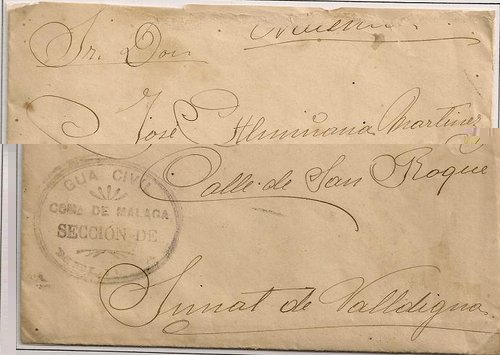 Sr. Don
José Almiñana Martinez
Calle de San Roque
GUA CIVIL
COMª DE MALAGA
SECCIÓN DE
Simat de Valldigna